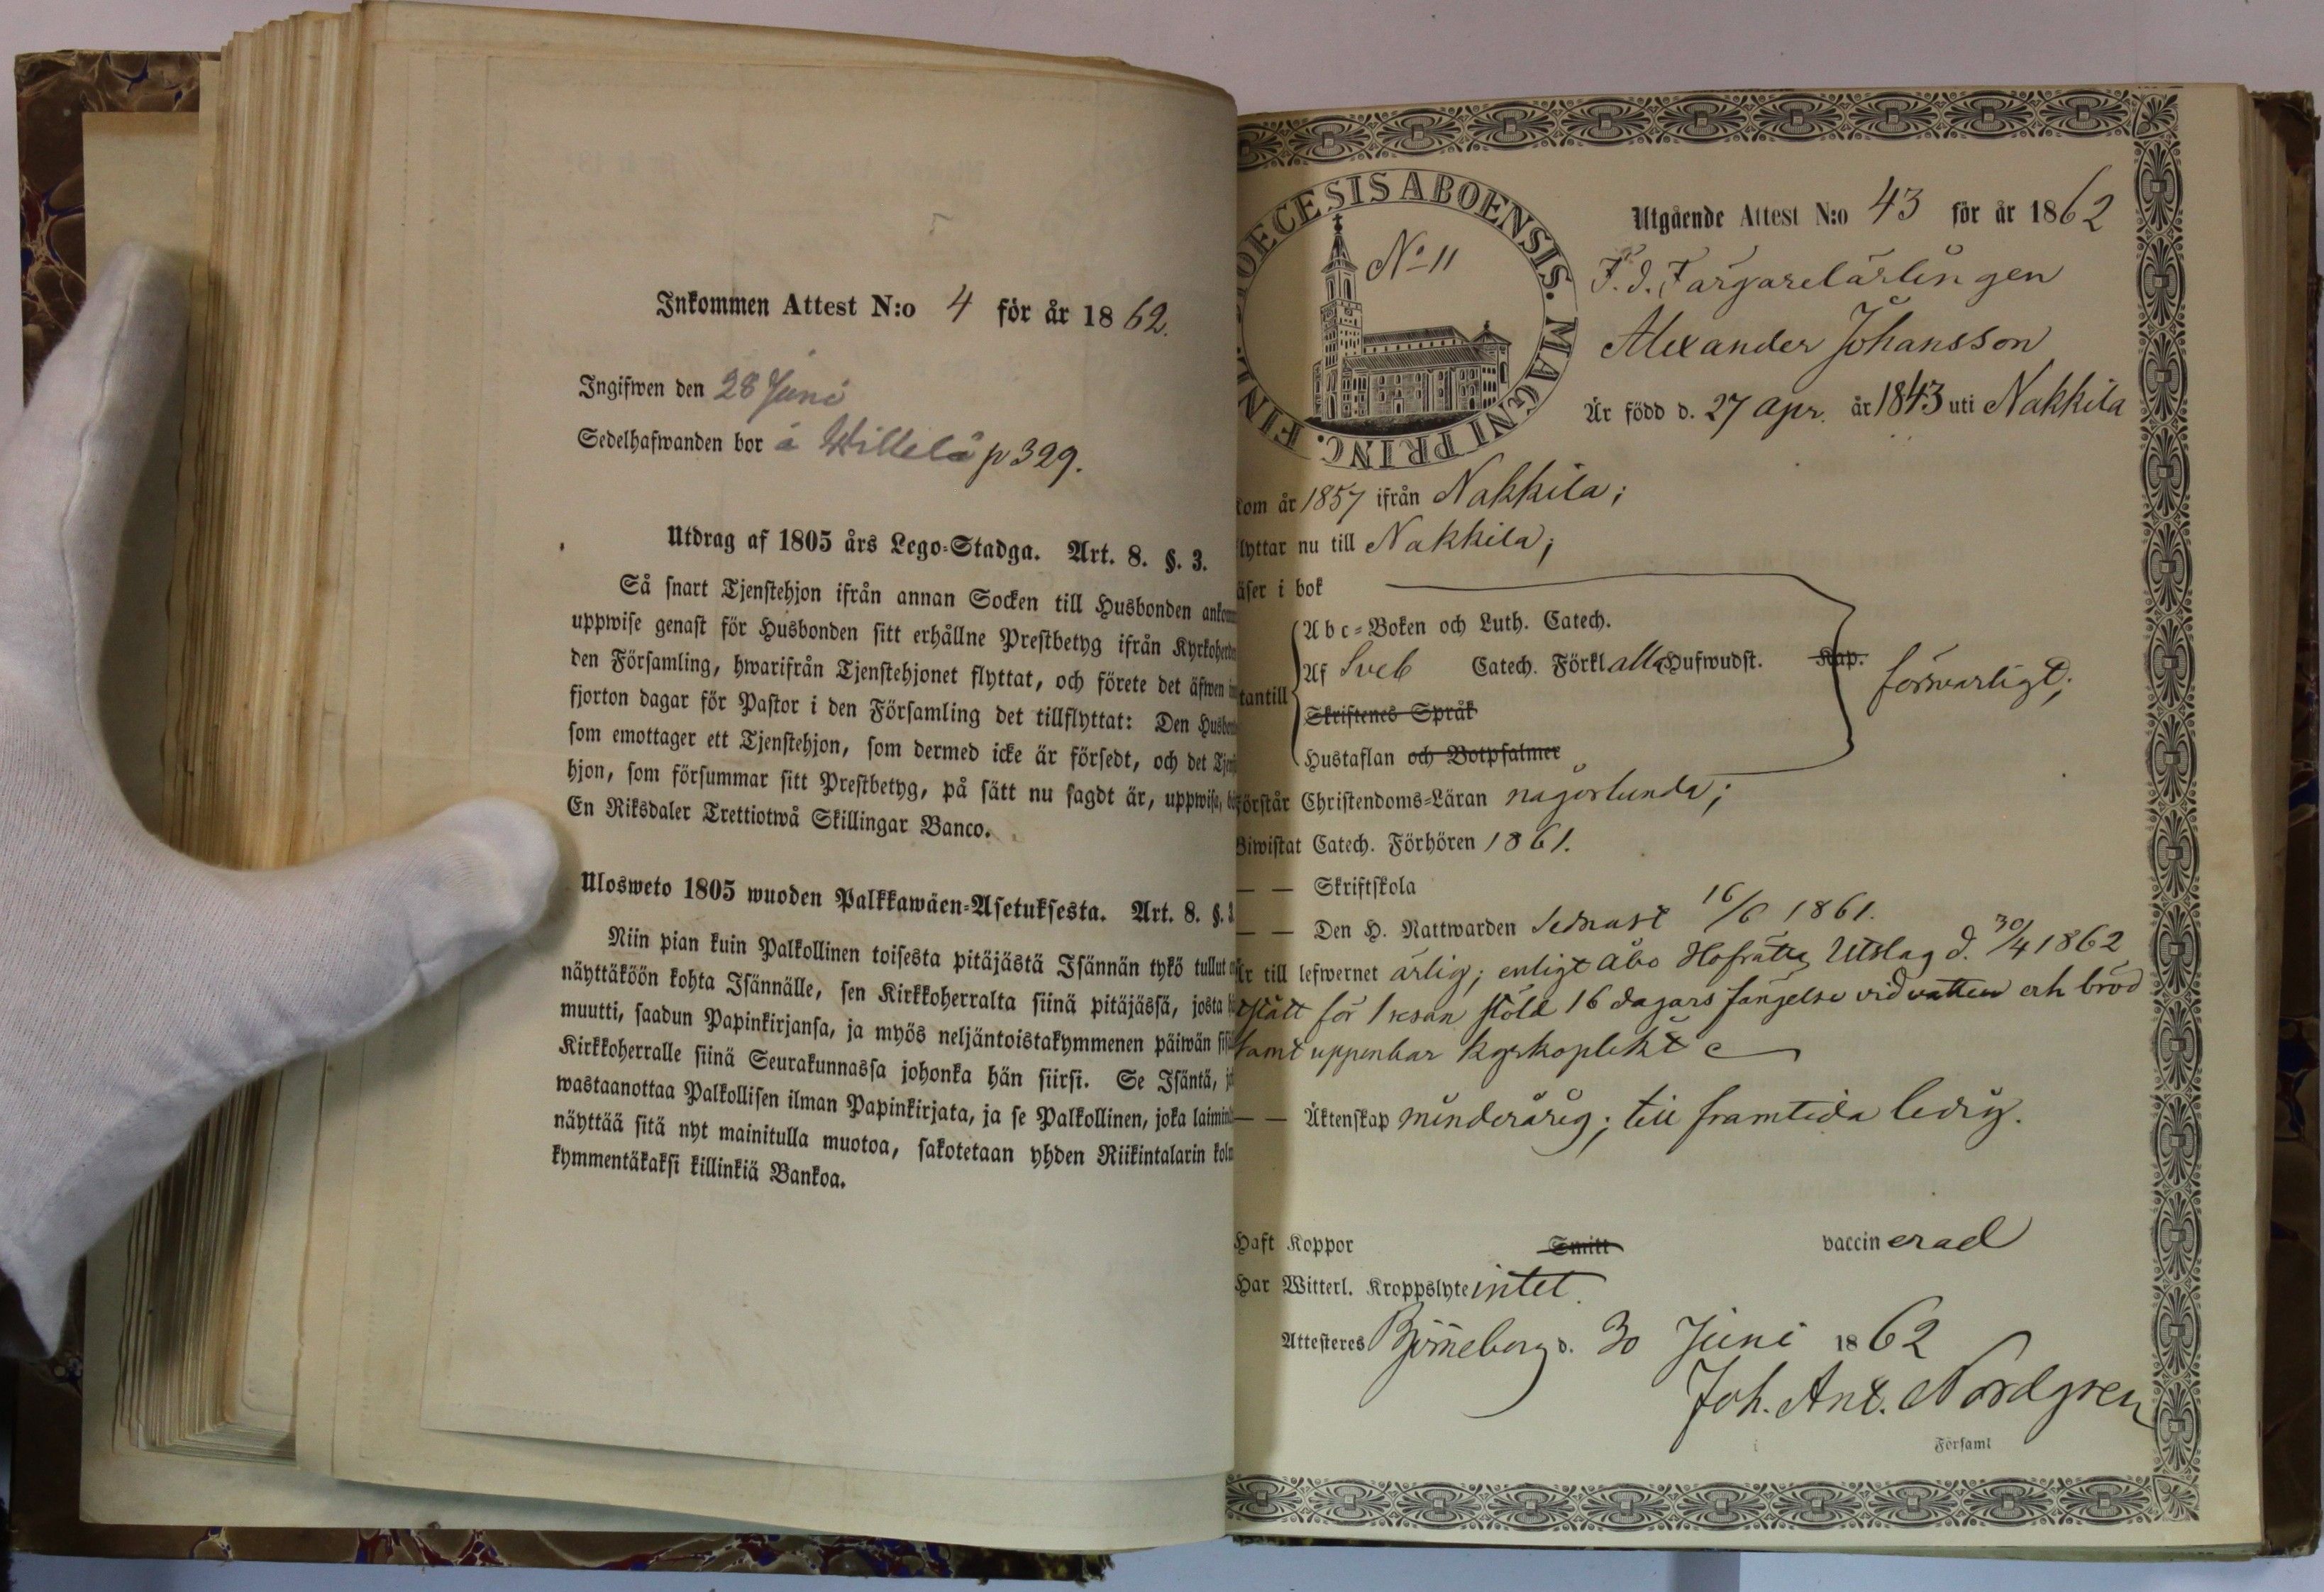 Inkommen Attest N:o 4 för år 1862.
Ingifwen den 28 Juni
Sedelhafwanden bor å Willilä p 329.
Utdrag af 1805 års Lego-Stadga. Art. 8. §. 3.
Så snart Tjenstehjon ifrån annan Socken till Husbonden
uppwise genast för Husbonden sitt erhållne Prestbetyg ifrån
den Församling, hwarifrån Tjenstehjonet flyttat, och förete det äfwen
fjorton dagar för Pastor i den Församling det tillflyttat: Den
som emottager ett Tjenstehjon, som dermed icke är försedt, och det
hjon, som försummar sitt Prestbetyg, på sätt nu sagdt är, uppwisa,
En Riksdaler Trettiotwå Skillingar Banco.
Ulosweto 1805 wuoden Palkkawäen-Asetuksesta. Art. 8. §. 3
Niin pian kuin Palkollinen toisesta pitäjästä Isännän tykö tullut
näyttäköön kohta Isännälle, sen Kirkkoherralta siinä pitäjässä, josta
muutti, saadun Papinkirjansa, ja myös neljäntoistakymmenen päiwän
Kirkkoherralle siinä Seurakunnassa johonka hän siirsi. Se Isäntä,
wastaanottaa Palkollisen ilman Papinkirjata, ja se Palkollinen, joka
näyttää sitä nyt mainitulla muotoa, sakotetaan yhden Riikintalarin
kymmentäkaksi killinkiä Bankoa.
DIOECESIS ABOENSIS. MAGNI PRINC. FINL.
No 11
Utgående Attest N:o 43 för år 1862
F. d. Färgarelärlingen
Alexander Johansson
Är född d. 27 Apr. år 1843 uti Nakkila
kom år 1857 ifrån Nakkila;
flyttar nu till Nakkila;
läser i bok
Abc-Boken och Luth. Catech.
Af Sveb Catech. Förkl alla Hufwudst. Kap.
förswarligt;
utantill
Skriftenes Språk
Hustaflan och Botpsalmer
förstår Christendoms-Läran någorlunda;
Biwistat Catech. Förhören 1861.
— — Skriftskola
— — Den H. Nattwarden sednast 16/6 1861.
Är till lefwernet ärlig; enligt Åbo Hofrätts Utslag d. 30/4 1862
för 1 resan stöld 16 dagars fängelse vid vatten och bröd
samt uppenbar kyrkoplikt
— — Äktenskap minderårig; till framtida ledig.
Haft Koppor Smitt vaccinerad
Har Witterl. Kroppslyte intet.
Attesteres Björneborg d. 30 Juni 1862
Joh. Ant. Nordgren
Församl